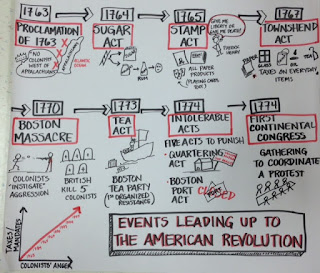 1763
PROCLAMATION
OF 1763
"NO
COLONISTS
WEST OF
APPALACHIANS"
1764
SUGAR
ACT
RUM
1765
STAMP
ACT
GIVE ME
LIBERTY OR
GIVE ME DEATH!
PATRICK
HENRY
ALL PAPER
PRODUCTS
(PLAYING CARDS,
TOO!)
1767
TOWNSHEND
ACT
GLASS
TAXES ON EVERYDAY
ITEMS
1770
BOSTON
MASSACRE
COLONISTS
"INSTIGATE"
AGGRESSION
BRITISH
KILL 5
COLONISTS
1773
TEA
ACT
BOSTON
TEA PARTY
1st ORGANIZED
RESISTANCE
1774
INTOLERABLE
ACTS
FIVE ACTS TO PUNISH
QUARTERING
ACT
BOSTON
PORT
ACT
CLOSED
1774
FIRST
CONTINENTAL
CONGRESS
GATHERING
TO COORDINATE
A PROTEST
TAXES/
MANDATES
COLONISTS' ANGER
EVENTS LEADING UP TO
THE AMERICAN REVOLUTION